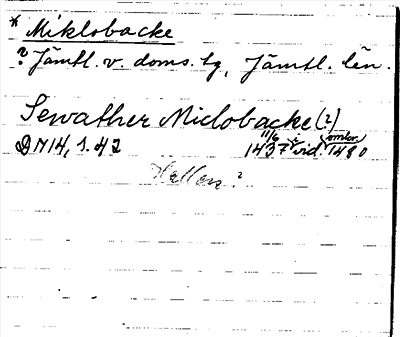 * Miklobacke
? Jämtl. v. doms. tg, Jämtl. län.
Sewather Miclobacke (?)
DN 14, s. 42 11/6 1437 i vid. omkr. 1480
Hallen?